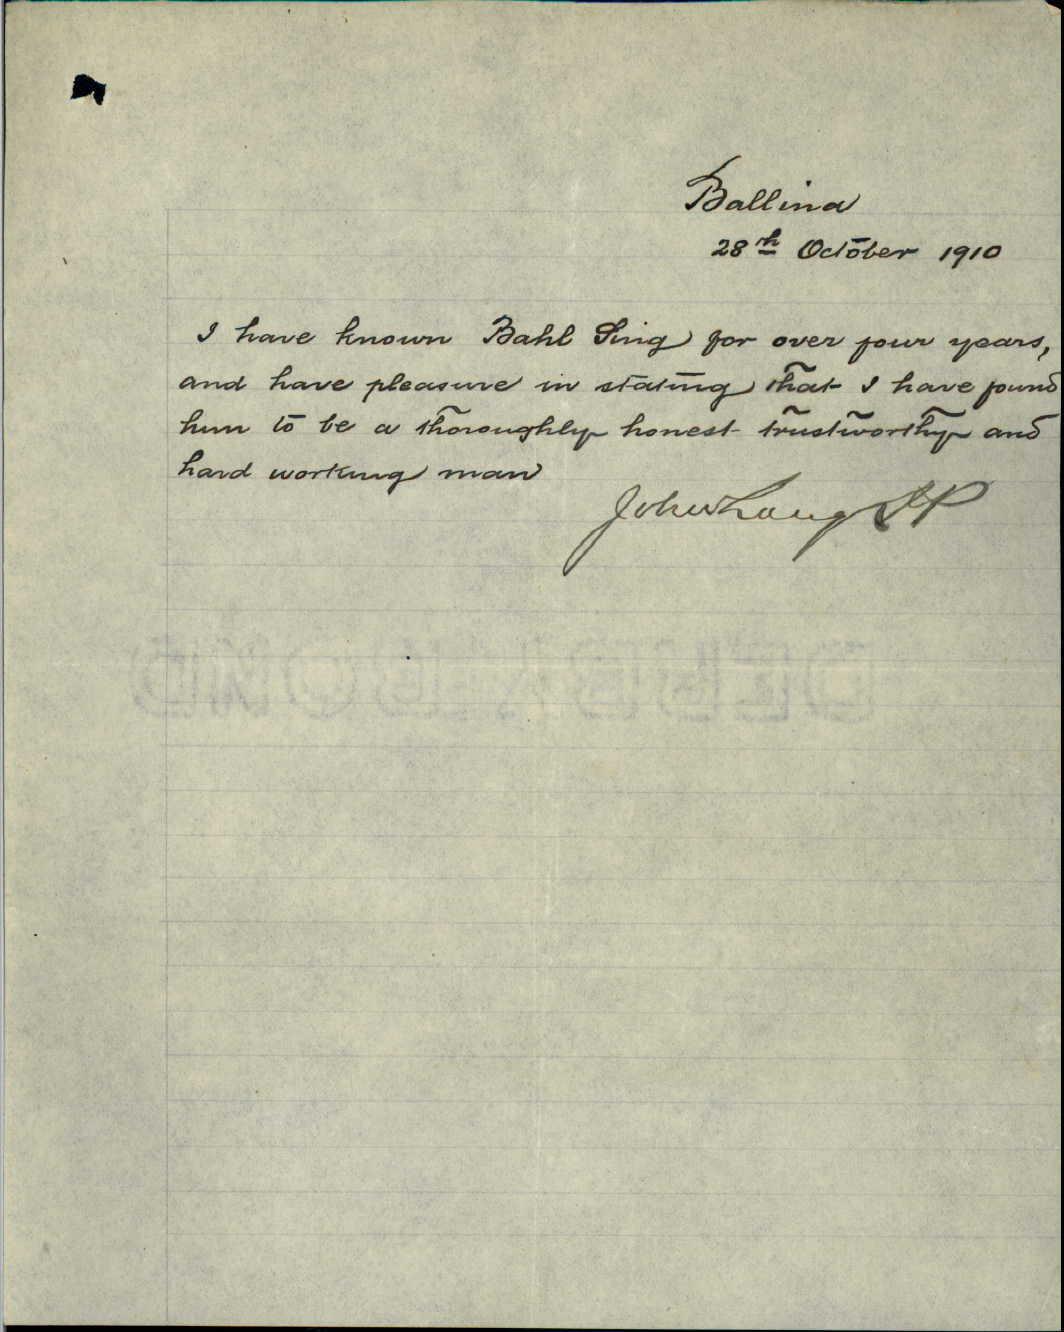 Ballina
28th October 1910
I have known Bahl Sing for over four years,
and have pleasure in stating that I have found
him to be a thoroughly honest trustworthy and
hard working man
John Lang JP